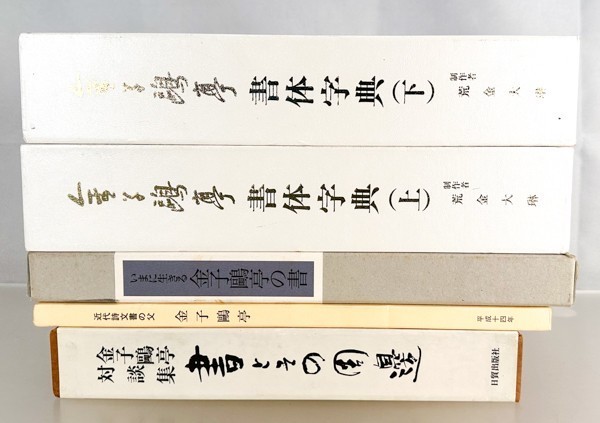 金子鷗亭
書体字典(下)
制作者
荒金大琳
金子鷗亭
書体字典(上)
制作者
荒金大琳
いまに生きる
金子鷗亭の書
近代詩文書の父
金子鷗亭
平成十四年
金子鷗亭
対談集
書とその周邊
日貿出版社